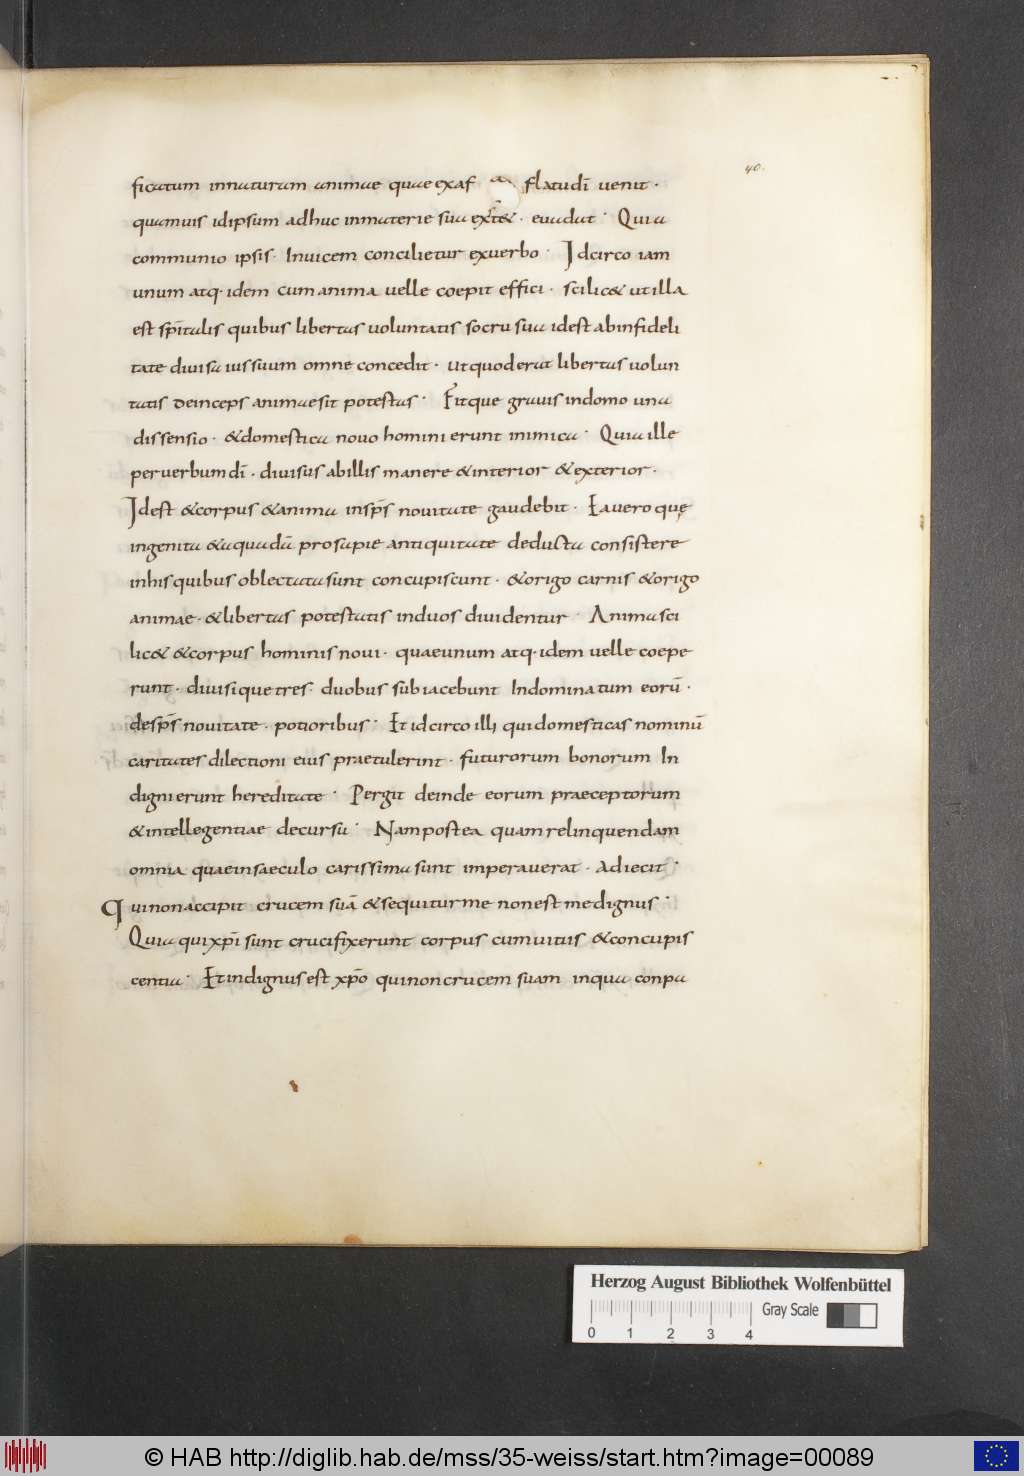 40.
ficatum innaturam animae quae exaf flatu dī uenit ·
quamuis idipsum adhuc inmaterie sua ext& · euadat · Quia
communio ipsis · Inuicem concilietur exuerbo · Idcirco iam
unum atq· idem cum anima uelle coepit effici · scilic& ut illa
est spītalis quibus libertas uoluntatis socru sua idest abinfideli
tate diuisa ius suum omne concedit · ut quod erat libertas uolun
tatis deinceps animae sit potestas · Fitque grauis in domo una
dissensio · & domestica nouo homini erunt inimica · Quia ille
per uerbum dī · diuisus ab illis manere & interior & exterior ·
Idest & corpus & anima in sp̄s nouitate gaudebit · Ea uero quę
ingenita & a quadā prosapie antiquitate deducta consistere
in his quibus oblectata sunt concupiscunt · & origo carnis & origo
animae · & libertas potestatis in duos diuidentur · Anima sci
lic& & corpus hominis noui · quae unum atq· idem uelle coepe
runt · diuisique tres · duobus subiacebunt In dominatum eorū ·
de sp̄s nouitate · potioribus · Et idcirco illi qui domesticas nominū
caritates dilectioni eius praetulerint · futurorum bonorum In
digni erunt hereditate · Pergit deinde eorum praeceptorum
& intellegentiae decursu · Nam postea quam relinquendam
omnia quae in saeculo carissima sunt imperauerat · adiecit ·
Qui non accipit crucem suā & sequitur me non est me dignus ·
Quia qui xp̄i sunt crucifixerunt corpus cum uitus & concupis
centia · Et indignus est xp̄o qui non crucem suam in qua conpa
Herzog August Bibliothek Wolfenbüttel
Gray Scale
0 1 2 3 4
© HAB http://diglib.hab.de/mss/35-weiss/start.htm?image=00089